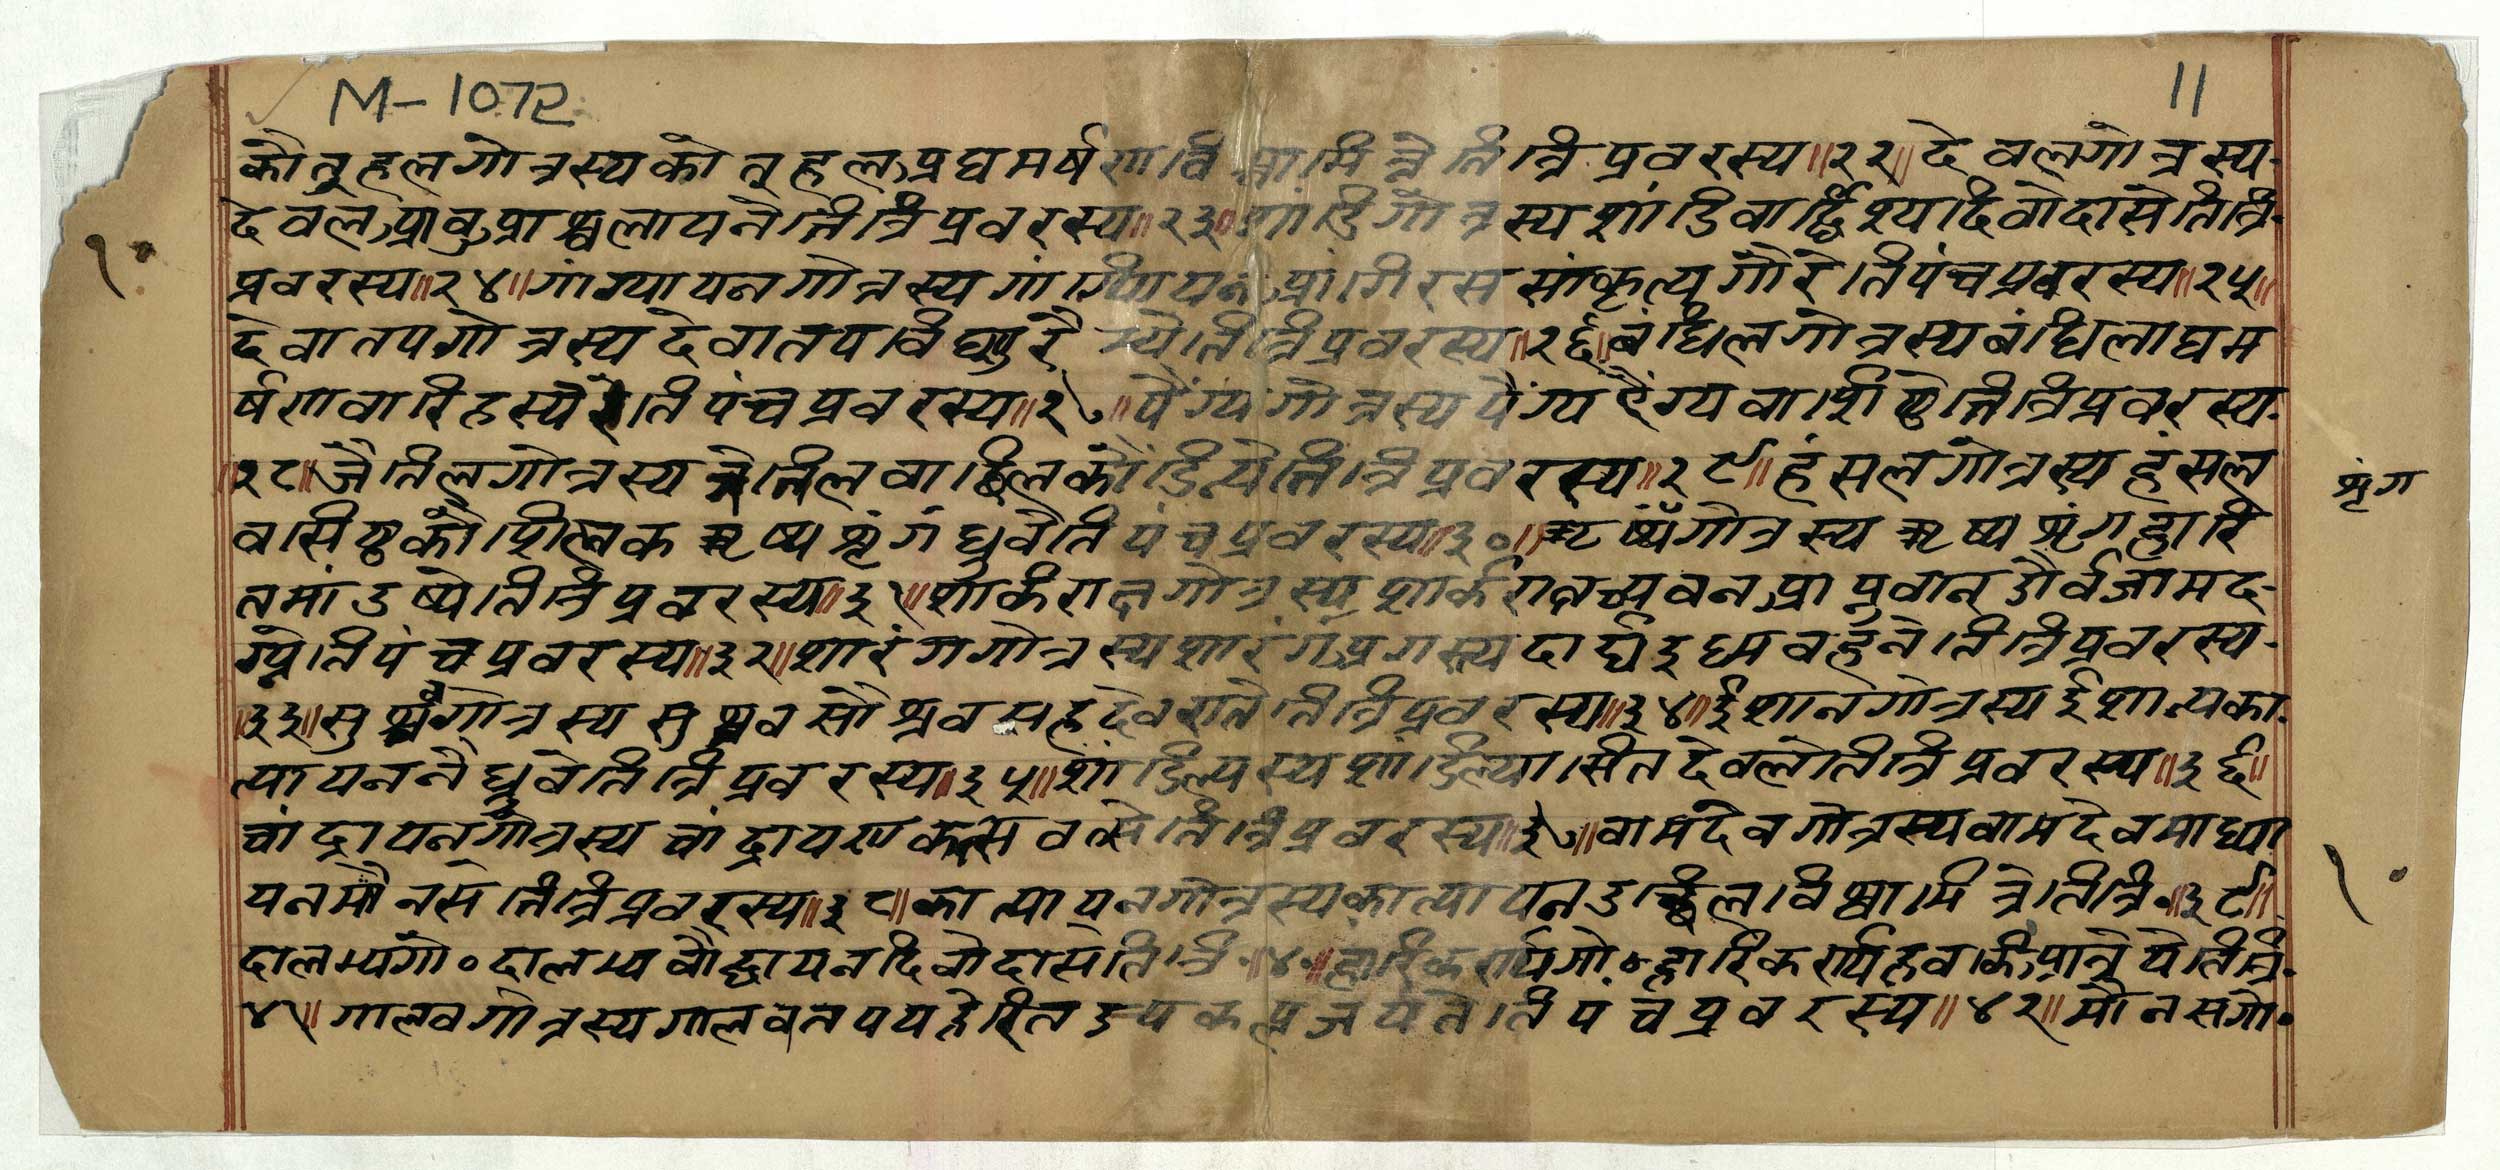 M-1072
11
कौतुहलगोत्रस्यकौतुहल,प्रघमर्षणविश्वामित्रेतित्रिप्रवरस्य॥२२॥देवलगोत्रस्य
देवल,प्रावु,प्राश्वलायनेतित्रिप्रवरस्य॥२३॥शांडिगोत्रस्यशांडिवार्द्धिश्यदिवोदासेतित्रि
प्रवरस्य॥२४॥गांग्यायनगोत्रस्यगांग्यायन,प्रांगिरससांकृत्यगौरेतिपंचप्रवरस्य॥२५॥
देवातपगोत्रस्यदेवातप त्रिप्रवरस्य॥२६॥बंधिलगोत्रस्यबंधिलाघम
र्षणवारिहस्ये तिपंचप्रवरस्य॥२७॥पैंग्यगोत्रस्यपैंग्य ग्यवाशिष्ठेतित्रिप्रवरस्य
॥२८॥जैतिलगोत्रस्यजैतिलवाछिलकौंडिन्येतित्रिप्रवरस्य॥२९॥हंसलगोत्रस्यहंसल
शृंग
वसिष्ठकौशिल्वकऋष्यशृंगध्रुवेतिपंचप्रवरस्य॥३०॥ऋष्यगोत्रस्यऋष्यशृंगहारि
तमांडष्येतित्रिप्रवरस्य॥३१॥शार्कराक्षगोत्रस्यशार्कराक्षच्यवन,प्राप्नुवानऔर्वजामद
ग्नेतिपंचप्रवरस्य॥३२॥शारंगगोत्रस्यशारंग,प्रगस्त्यदार्घ्यइध्मवहनेतित्रिप्रवरस्य
॥३३॥सुश्रवगोत्रस्यसुश्रवसौश्रवसहदेवरातेतित्रिप्रवरस्य॥३४॥ईशानगोत्रस्यईशान्यका
त्यायननैध्रुवेतित्रिप्रवरस्य॥३५॥शांडिल्यस्यशांडिल्यासितदेवलेतित्रिप्रवरस्य॥३६॥
चांद्रायनगोत्रस्यचांद्रायणकत्सवत्सेतित्रिप्रवरस्य॥३७॥वामदेवगोत्रस्यवामदेवमाघ्या
यनमौनसेतित्रिप्रवरस्य॥३८॥कात्यायनगोत्रस्यकात्यायन विश्वामित्रेतित्रि०॥३९॥
दालम्यगो०दालम्यवौद्धायनदिवोदासेतित्रि०॥४०॥हारिकर्णर्यगो०हारिकर्णर्यहवकि,प्रात्रेयेतित्रि
४१॥गालवगोत्रस्यगालव तिपंचप्रवरस्य॥४२॥मौनसगो०